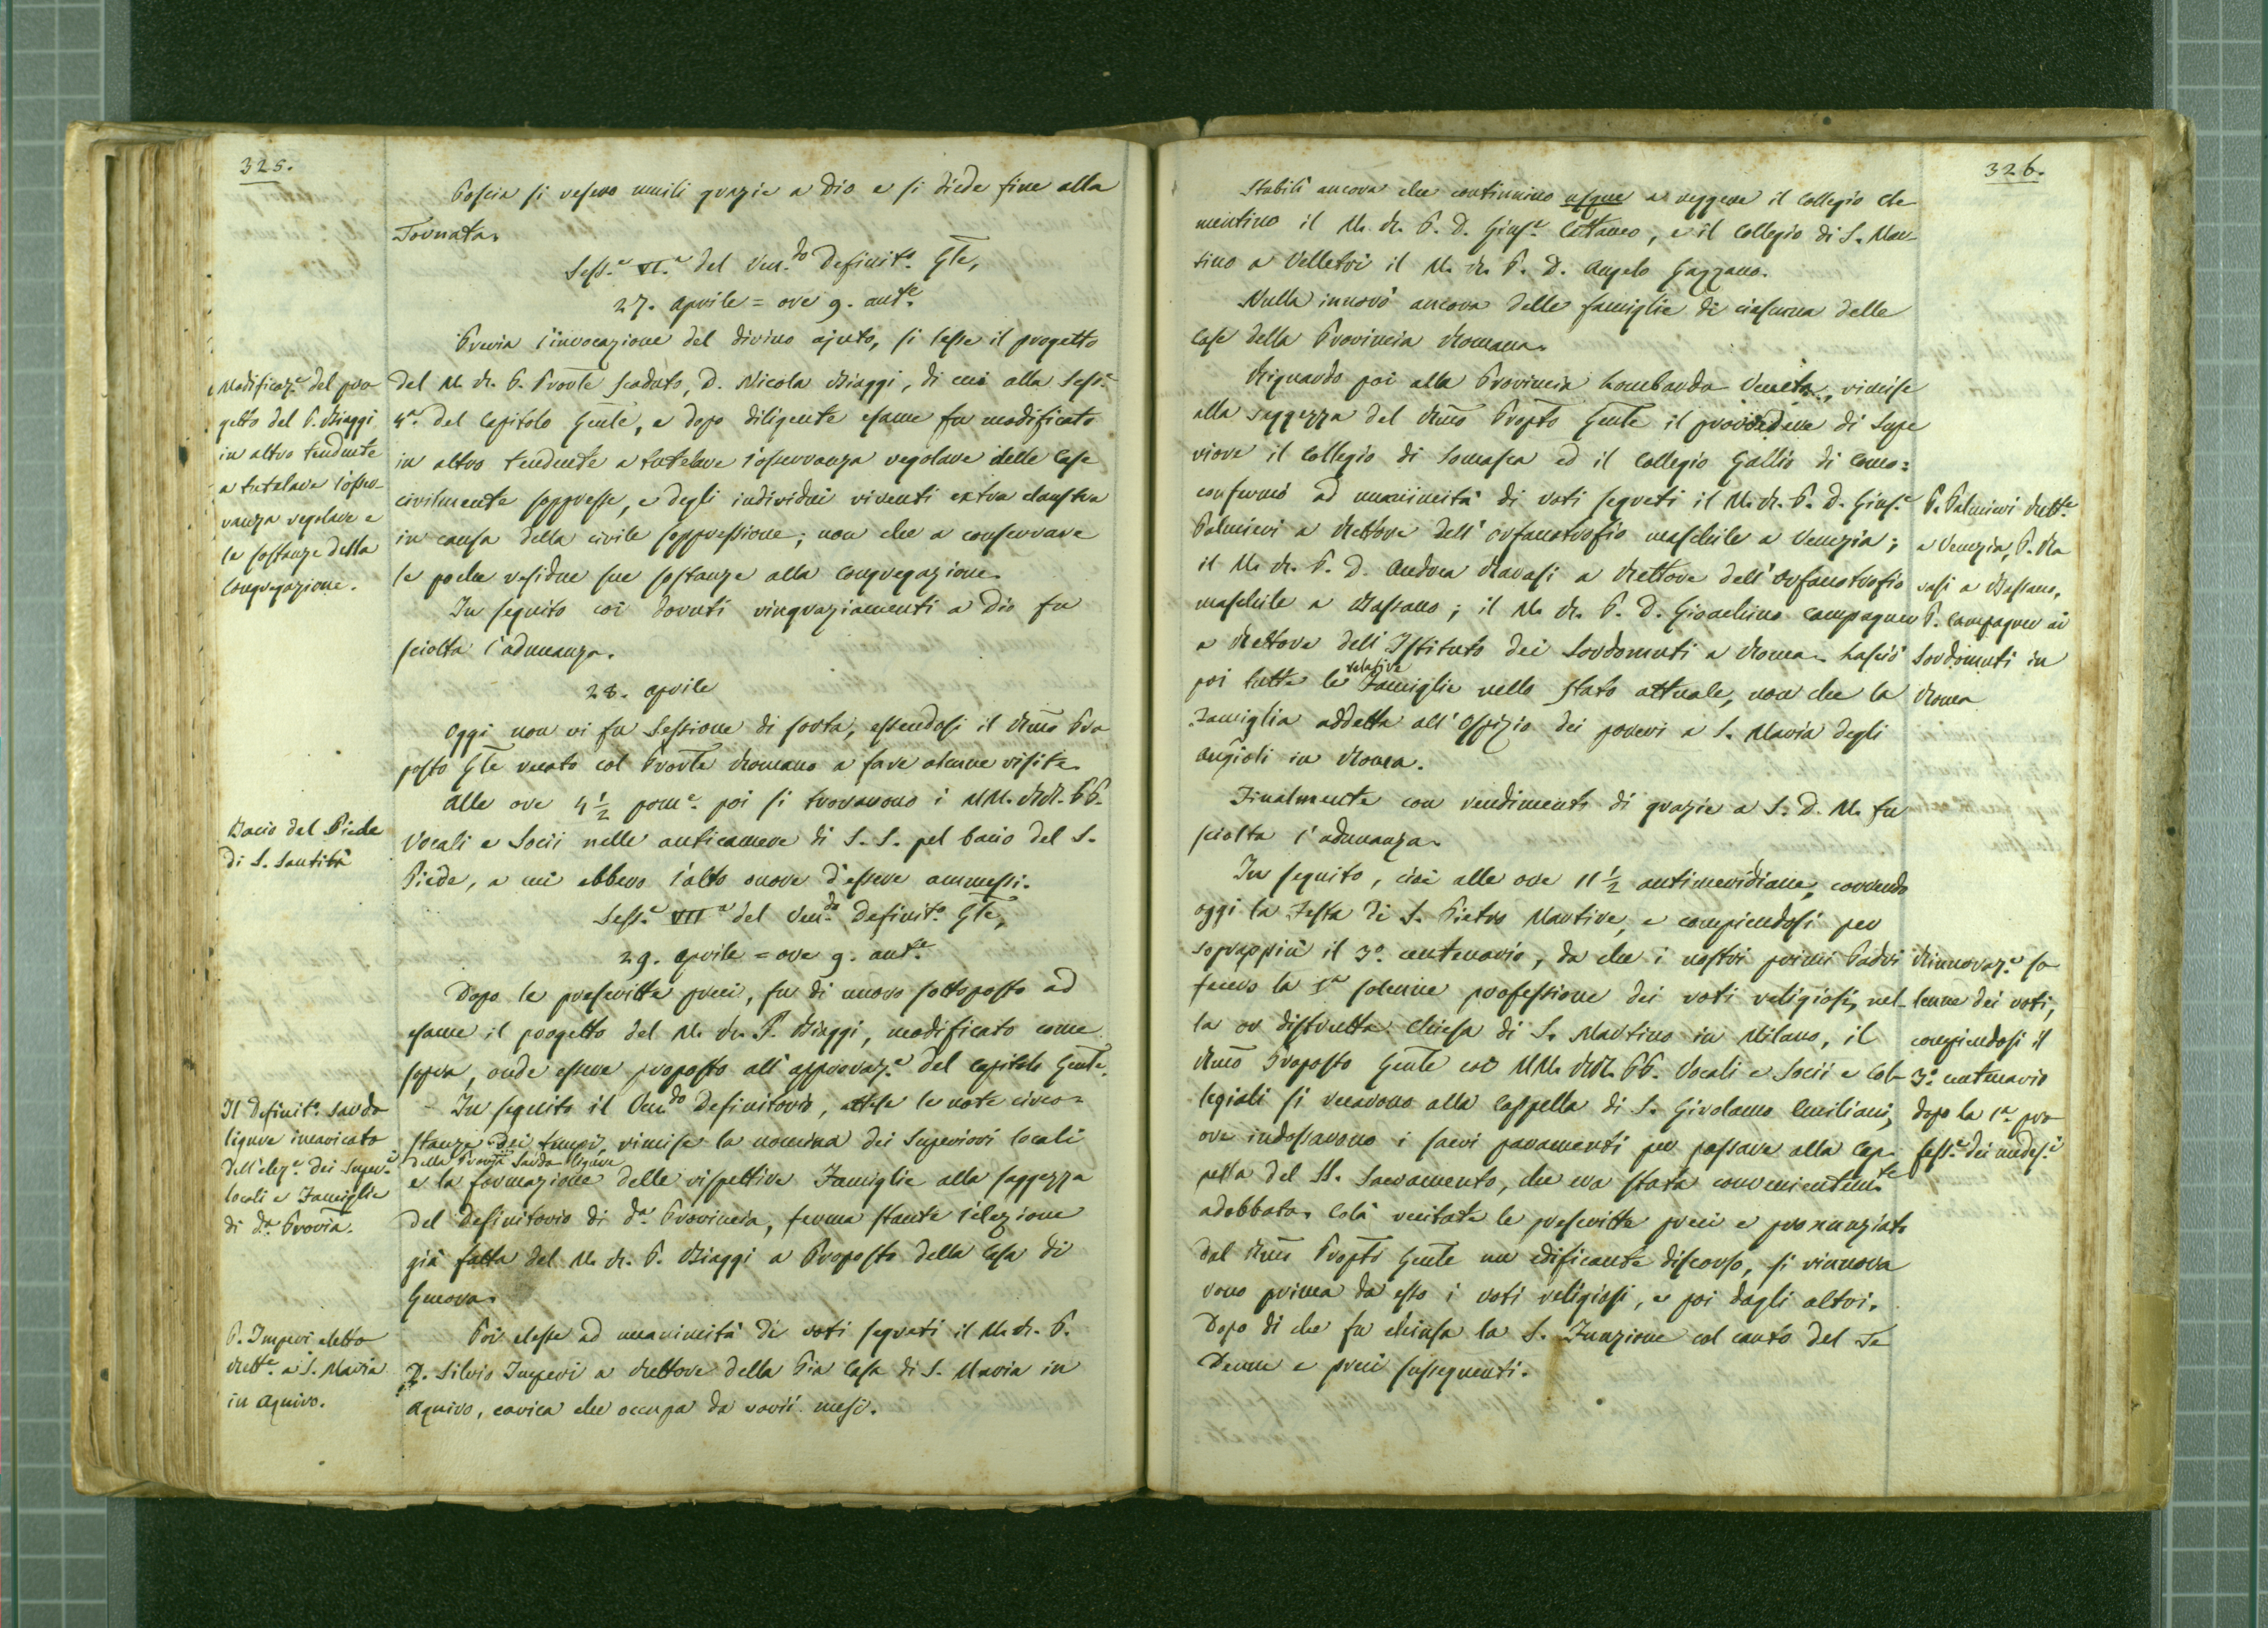 325.
Poscia si resero umili grazie a Dio e si diede fine alla
Tornata.
Sess.e VI.a del Ven.do Definit.o Gle,
27. Aprile = ore 9. ant.e
Previa l'invocazione del divino ajuto, si lesse il progetto
del M. R. P. Provle scaduto, D. Nicola Biaggi, di cui alla Sess.e
4.a del Capitolo Genle, e dopo diligente esame fu modificato
in altro tendente a tutelare l'osservanza regolare delle Case
civilmente soppresse, e degli individui viventi extra claustra
in causa della civile soppressione; non che a conservare
le poche residue sue sostanze alla Congregazione.
In seguito coi dovuti ringraziamenti a Dio fu
sciolta l'adunanza.
28. Aprile
Oggi non vi fu Sessione di sorta, essendosi il Rmo Pre
posto Gle recato col Provle Romano a fare alcune visite.
Alle ore 4 1/2 pom.e poi si trovarono i MM. RR. PP.
Vocali e Socii nelle anticamere di S. S. pel bacio del S.
Piede, a cui ebbero l'alto onore d'essere ammessi.
Sess.e VII.a del Ven.do Definit.o Gle,
29. Aprile = ore 9. ant.e
Dopo le prescritte preci, fu di nuovo sottoposto ad
esame il progetto del M. R. P. Biaggi, modificato come
sopra, onde essere proposto all'approvaz.e del Capitolo Genle.
In seguito il Ven.do Definitorio, attese le note circo=
stanze dei tempi, rimise la nomina dei Superiori locali
della Provja Sardo-ligure
e la formazione delle rispettive Famiglie alla saggezza
del Definitorio di d.a Provincia, ferma stante l'elezione
già fatta del M. R. P. Biaggi a Preposto della Casa di
Genova.
Poi elesse ad unanimità di voti segreti il M. R. P.
D. Silvio Imperi a Rettore della Pia Casa di S. Maria in
Aquiro, carica che occupa da varii mesi.
Modificaz.e del pro
getto del P. Biaggi
in altro tendente
a tutelare l'osser
vanza regolare e
le sostanze della
Congregazione.
Bacio del Piede
di S. Santità
Il Definit.o Sardo
ligure incaricato
dell'elez.e dei Super.i
locali e Famiglie
di d.a Provia.
P. Imperi eletto
Rett.e a S. Maria
in Aquiro.
326.
Stabilì ancora che continuino usque a reggere il Collegio Cle
mentino il M. R. P. D. Gius.e Cattaneo, e il Collegio di S. Mar
tino a Velletri il M. R. P. D. Angelo Gazzano.
Nulla innovò ancora delle famiglie di ciascuna delle
Case della Provincia Romana.
Riguardo poi alla Provincia Lombardo Veneta, rimise
alla saggezza del Rmo Propto Genle il provvedere di Supe
riore il Collegio di Somasca ed il Collegio Gallio di Como:
confermò ad unanimità di voti segreti il M. R. P. D. Gius.e
Palmieri a Rettore dell'orfanotrofio maschile a Venezia;
il M. R. P. D. Andrea Ravasi a Rettore dell'Orfanotrofio
maschile a Bassano; il M. R. P. D. Gioachino Campagner
a Rettore dell'Istituto dei Sordomuti a Roma. Lasciò
relative
poi tutte le Famiglie nello stato attuale, non che la
Famiglia addetta all'Ospizio dei poveri a S. Maria degli
Angioli in Roma.
Finalmente con rendimento di grazie a S. D. M. fu
sciolta l'adunanza.
In seguito, cioè alle ore 11 1/2 antimeridiane, correndo
oggi la Festa di S. Pietro Martire, e compiendosi per
soprappiù il 3.o centenario, da che i nostri primi Padri
fecero la 1.a solenne professione dei voti religiosi, nel-
la or distrutta Chiesa di S. Martino in Milano, il
Rmo Preposto Genle coi MM. RR. PP. Vocali e Socii e Col-
legiali si recarono alla Cappella di S. Girolamo Emiliani,
ove indossarono i sacri paramenti per passare alla Cap-
pella del SS. Sacramento, che era stata convenientem.te
adobbata. Colà recitate le prescritte preci e pronunziato
dal Rmo Propto Genle un edificante discorso, si rinnova
rono prima da esso i voti religiosi, e poi dagli altri.
Dopo di che fu chiusa la S. Funzione col canto del Te
Deum e preci susseguenti.
P. Palmieri Rett.e
a Venezia, P. Ra
vasi a Bassano,
P. Campagner ai
Sordomuti in
Roma
Rinnovaz.e so
lenne dei voti,
compiendosi il
3.o centenario
dopo la 1.a pro
fess.e dei medes.i